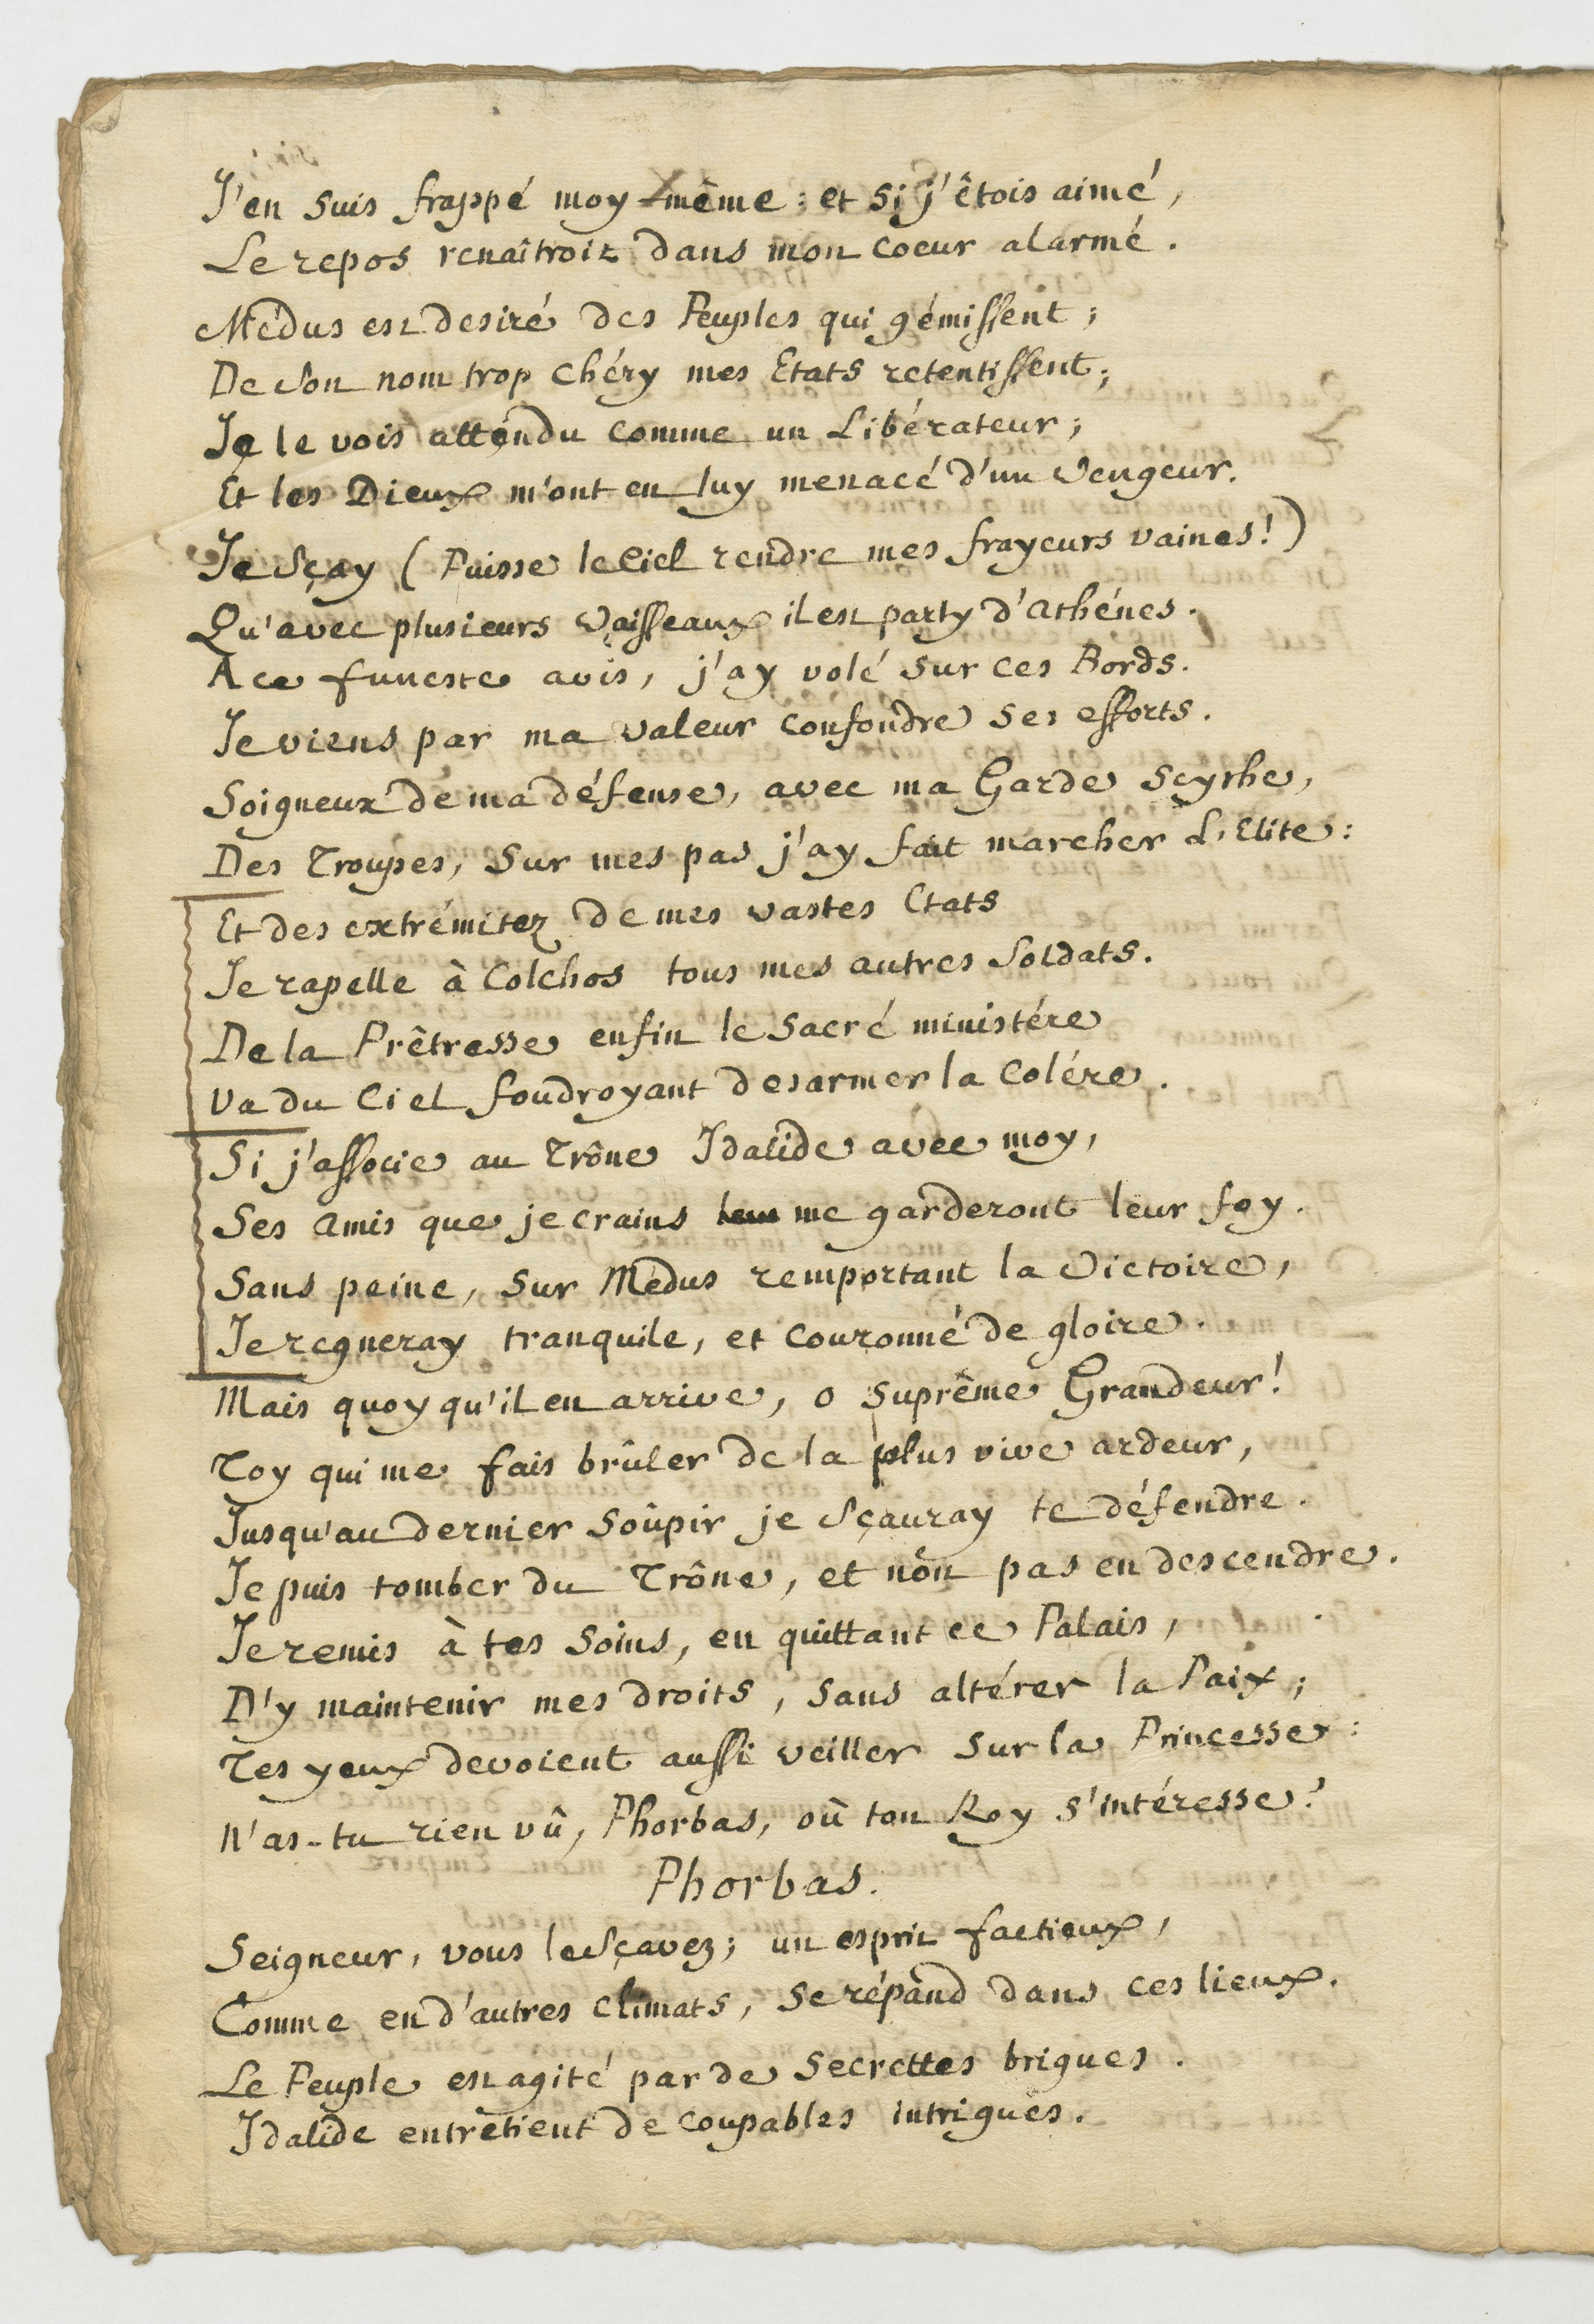 J'en suis frappé moy-même : et si j'êtois aimé,
Le repos renaîtroit dans mon coeur alarmé.
Médus est desiré des Peuples qui gémissent ;
De son nom trop chéry mes Etats retentissent ;
Je le vois attendu comme un Libérateur ;
Et les Dieux m'ont en luy menacé d'un Vengeur.
Je sçay (Puisse le Ciel rendre mes frayeurs vaines !)
Qu'avec plusieurs Vaisseaux il est party d'Athénes.
A ce funeste avis, j'ay volé sur ces Bords.
Je viens par ma valeur confondre ses efforts.
Soigneux de ma défense, avec ma Garde Scythe,
Des Troupes, sur mes pas j'ay fait marcher L'Elite :
Et des extrémitez de mes vastes Etats
Je rapelle à Colchos tous mes autres Soldats.
De la Prêtresse enfin le sacré ministére
Va du Ciel foudroyant desarmer la colére.
Si j'associe au Trône Idalide avec moy,
Ses amis que je crains me garderont leur foy.
Sans peine, sur Médus remportant la Victoire,
Je regneray tranquile, et couronné de gloire.
Mais quoy qu'il en arrive, o suprême Grandeur !
Toy qui me fais brûler de la plus vive ardeur,
Jusqu'au dernier soûpir je sçauray te défendre.
Je puis tomber du Trône, et non pas en descendre.
Je remis à tes soins, en quittant ce Palais,
D'y maintenir mes droits, sans altérer la Paix ;
Tes yeux devoient aussi veiller sur la Princesse :
N'as-tu rien vû, Phorbas, où ton Roy s'intéresse ?
Phorbas.
Seigneur, vous le sçavez ; un esprit factieux,
Comme en d'autres climats, se répand dans ces lieux.
Le Peuple est agité par de secrettes brigues.
Idalide entretient de coupables intrigues.